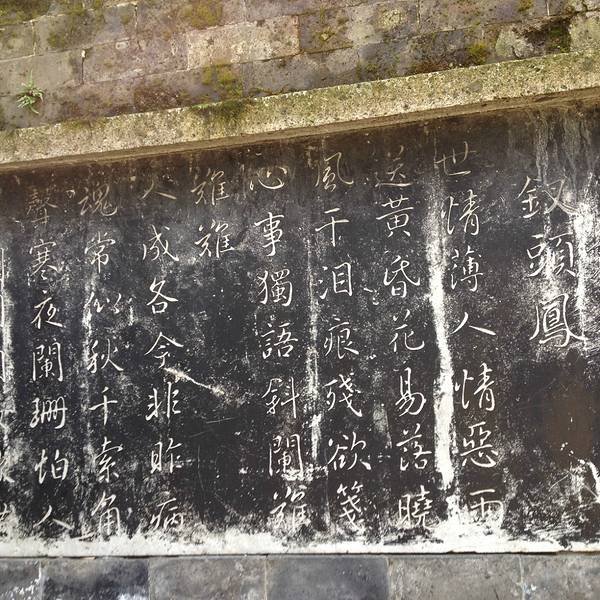 釵頭鳳
世情薄人情惡雨
送黃昏花易落曉
風干泪痕殘欲箋
心事獨語斜闌難
難難
人成各今非昨病
魂常似秋千索角
聲寒夜闌珊怕人